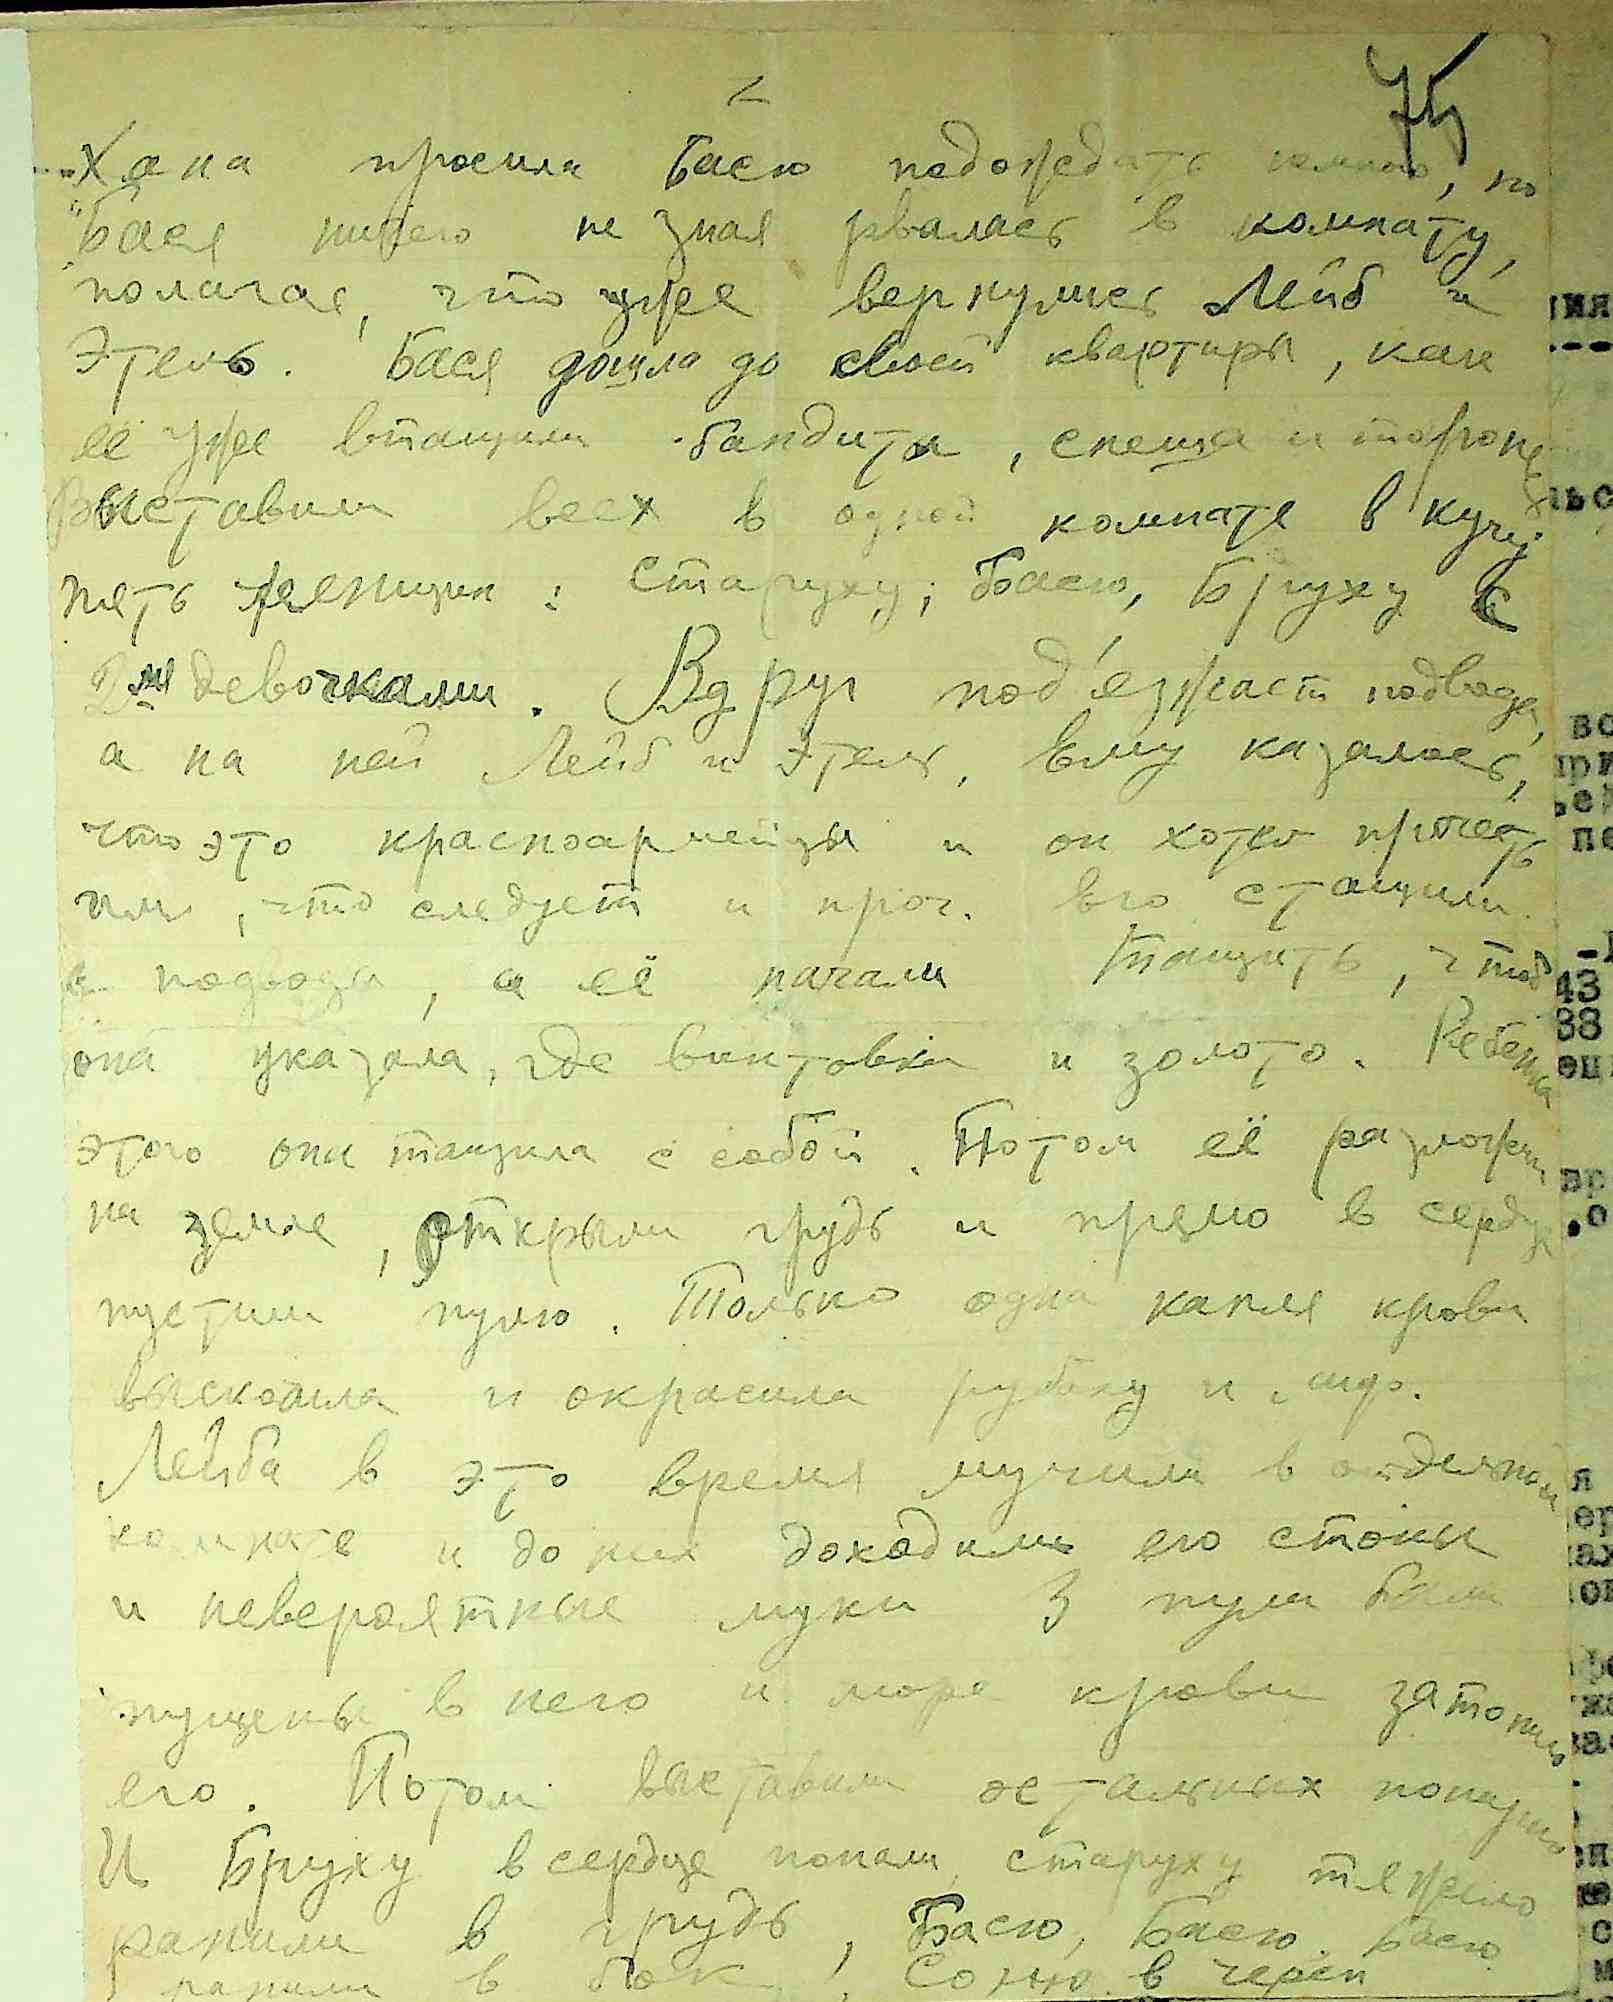 75
Хана просила Басю подождать, но
Бася ничего не зная рвалась в комнату,
полагая, что уже вернулись Лейб и
Этель. Бася дошла до своей квартиры, как
её уже втащили бандиты, спеша и торопясь
выставили всех в одной комнате в кучу.
пять женщин: Старуху, Басю, Бруху с
2мя девочками. Вдруг под'езжает подвода,
а на ней Лейб и Этель. Ему казалось,
что это красноармейцы и он хотел
им, что следует и проч. Его стащили
с подводы, а её начали тащить, чтоб
она указала, где винтовки и золото. Ребенка
этого она тащила с собой. Потом её разложили
на земле, открыли грудь и прямо в сердце
пустили пулю. Только одна капля крови
выскочила и окрасила рубаху и
Лейба в это время мучили в отдельной
комнате и до них доходили его стоны
и невероятные муки 3 пули были
пущены в него и море крови затопило
его. Потом выставили остальных
И Бруху в сердце попали, старуху тяжело
ранили в грудь, Басю, Басю Басю
ранили в бок, Соню в череп